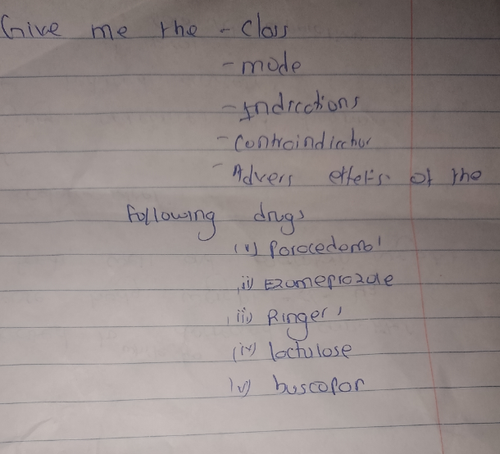 Give me the - Class
- mode
- Indications
- Contraindicchor
- Advers effets of the
Following drugs
(i) Paracedamol
ii) Ezomeprazole
iii) Ringer's
(iv) lactulose
(v) buscopan